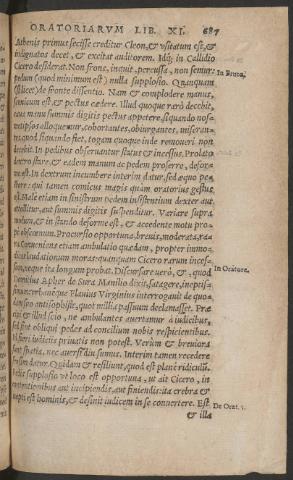 ORATORIARVM LIB. XI. 687
Athenis primus fecisse creditur Cleon, & vsitatum est, &
indignatos decet, & excitat auditorem. Idq; in Callidio
Cicero desiderat. Non frons, inquit, percussa, non femur:
In Bruto.
pedum (quod minimum est) nulla supplosio. Quanquam
de fronte dissentio. Nam & complodere manus,
scenicum est, & pectus cædere. Illud quoque rarò decebit,
caua manu summis digitis pectus appetere, si quando nos
ipsos alloquimur, cohortantes, obiurgantes, miseran-
quod siquando fiet, togam quoque inde remoueri non
In pedibus obseruantur status & incessus. Prolato
dextro stare, & eadem manum ac pedem proferre, defor-
est. In dextrum incumbere interim datur, sed æquo pe-
qui tamen comicus magis quàm oratorius gestus
Male etiam in sinistrum pedem insistentium dexter aut
tollitur, aut summis digitis suspenditur. Varicare supra
& in stando deforme est, & accedente motu pro-
pè obscœnum. Procursio opportuna, breuis, moderata, ra-
Conueniens etiam ambulatio quædam, propter immo-
laudationum moras: quanquam Cicero rarum inces-
neque ita longum probat. Discursare uerò, &, quod
In Oratore.
Afer de Sura Manlio dixit, satagere, inepti-
Flauius Virginius interrogauit de quo-
suo antisophiste, quot millia passuum declamasset. Præ-
& illud scio, ne ambulantes auertamur à iudicibus,
sed sint obliqui pedes ad concilium nobis respicientibus.
fieri iudiciis priuatis non potest. Verùm & breuiora
spatia, nec auersi diu sumus. Interim tamen recedere
datur. Quidam & resiliunt, quod est planè ridiculũ.
supplosio vt loco est opportuna, ut ait Cicero, in
contentionibus aut incipiendis, aut finiendis: ita crebra &
inepti est hominis, & desinit iudicem in se conuertere. Est
De Orat. 3.
& illa